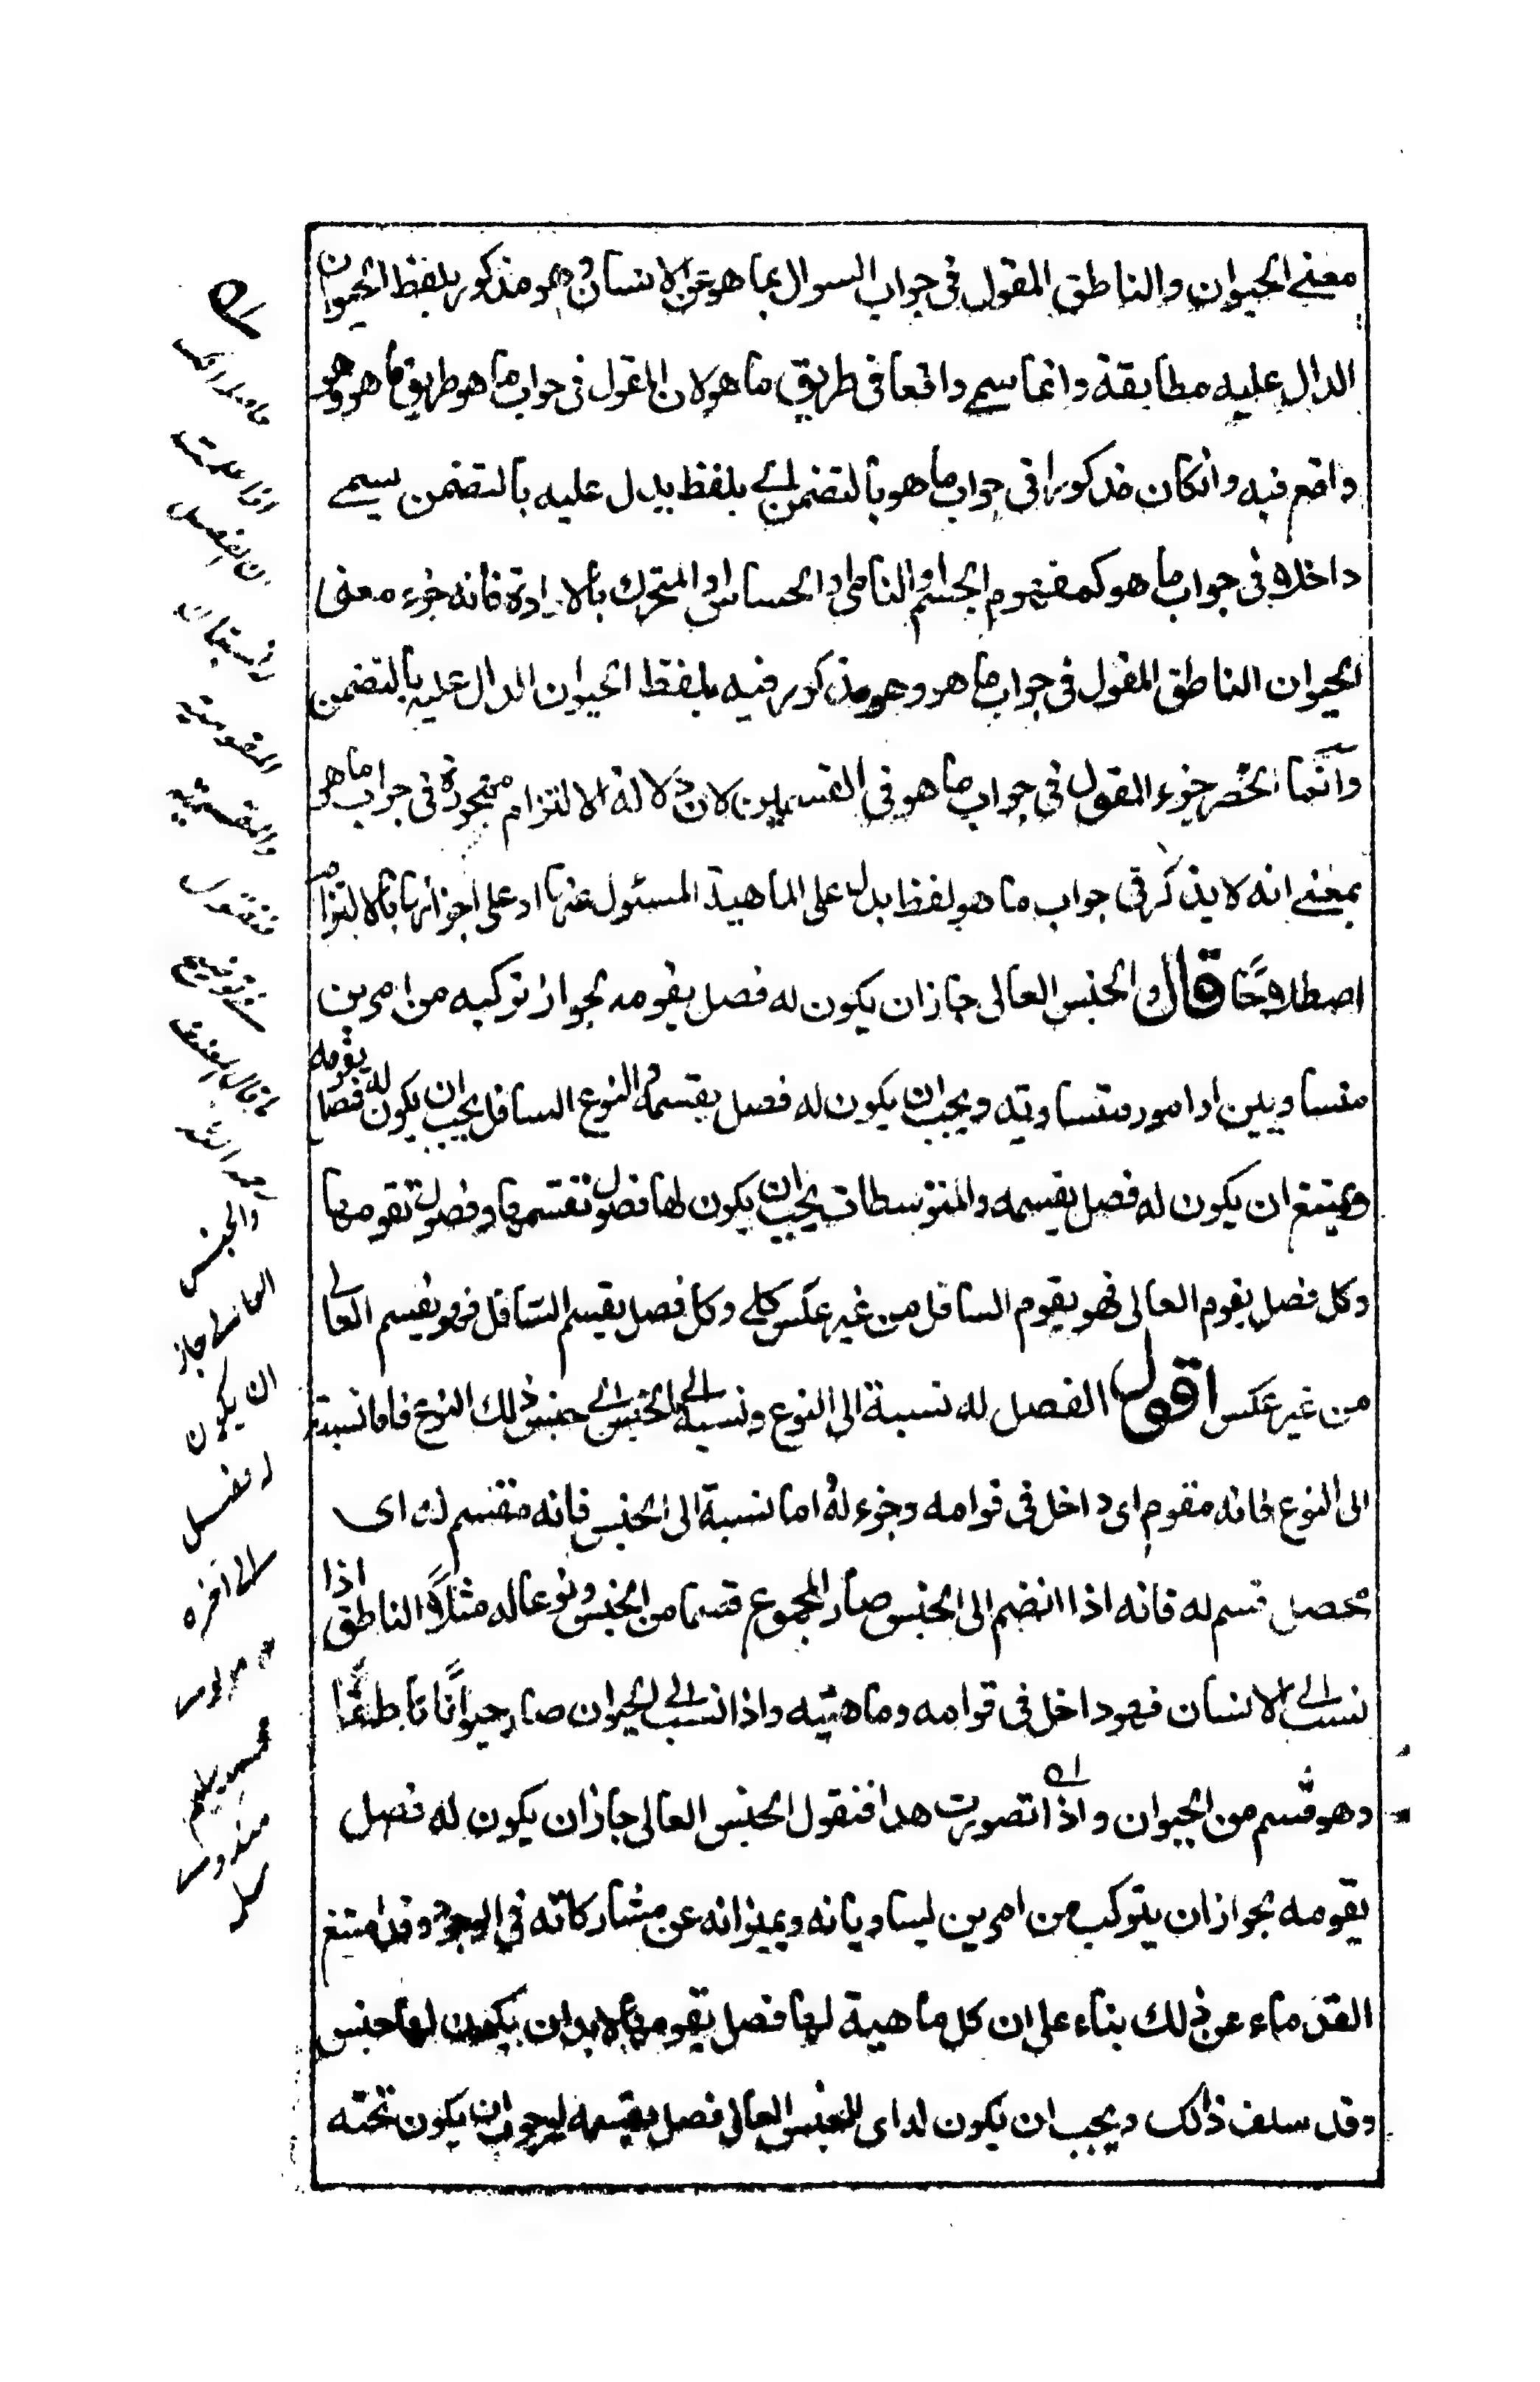 معنى الحيوان والناطق المقول فى جواب السوال بما هو عن الانسان وهو مذكور بلفظ الحيوان
الدال عليه مطابقة وانما سمى واقعا فى طريق ما هو لان المقول فى جواب ما هو طريق ما هو وهو
واقع فيه وانكان مذكورا فى جواب ما هو بالتضمن اى بلفظ يدل عليه بالتضمن يسمى
داخلا فى جواب ما هو كمفهوم الجسم او النامى او الحساس او المتحرك بالارادة فانه جزء معنى
الحيوان الناطق المقول فى جواب ما هو وهو مذكور فيه بلفظ الحيوان الدال عليه بالتضمن
وانما انحصر جزء المقول فى جواب ما هو فى القسمين لان دلالة الالتزام مهجورة فى جواب ما هو
بمعنى انه لا يذكر فى جواب ما هو لفظ يدل على الماهية المسئول عنها او على اجزائها بالالتزام
اصطلاحا قال والجنس العالى جاز ان يكون له فصل يقومه لجواز تركبه من امرين
متساويين او امور متساوية ويجب ان يكون له فصل يقسمه والنوع السافل يجب ان يكون له فصل يقومه
ويمتنع ان يكون له فصل يقسمه والمتوسطات يجب ان يكون لها فصول تقسمها وفصول تقومها
وكل فصل يقوم العالى فهو يقوم السافل من غير عكس كلى وكل فصل يقسم السافل فهو يقسم العالى
من غير عكس اقول الفصل له نسبة الى النوع ونسبة الى الجنس اى جنس ذلك النوع فاما نسبته
الى النوع فانه مقوم اى داخل فى قوامه وجزء له واما نسبة الى الجنس فانه مقسم له اى
محصل قسم له فانه اذا انضم الى الجنس صار المجموع قسما من الجنس ونوعا له مثلا الناطق اذا
نسب الى الانسان فهو داخل فى قوامه وماهيته واذا نسب الى الحيوان صار حيوانا ناطقا
وهو قسم من الحيوان واذا تصورت هذا فنقول الجنس العالى جاز ان يكون له فصل
يقومه لجواز ان يتركب من امرين يساويانه ويميزانه عن مشاركاته فى الوجود وقد امتنع
القدماء عن ذلك بناء على ان كل ماهية لها فصل يقومها لا بد ان يكون لها جنس
وقد سلف ذالك ويجب ان يكون له اى للجنس العالى فصل يقسمه لوجوب ان يكون تحته
ان الفصل
المقومية
والمقسمية
والجنس
العالى جاز
ان يكون
له فصل
الى آخره